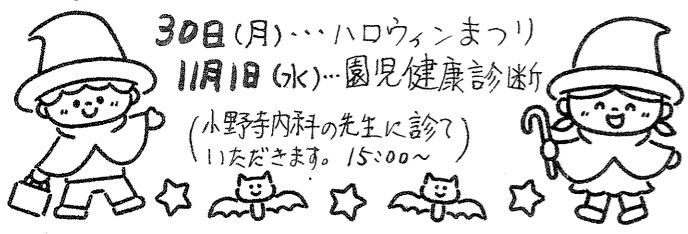 30日(月)…ハロウィンまつり
11月1日(水)…園児健康診断
(小野寺内科の先生に診て
いただきます。15:00〜)